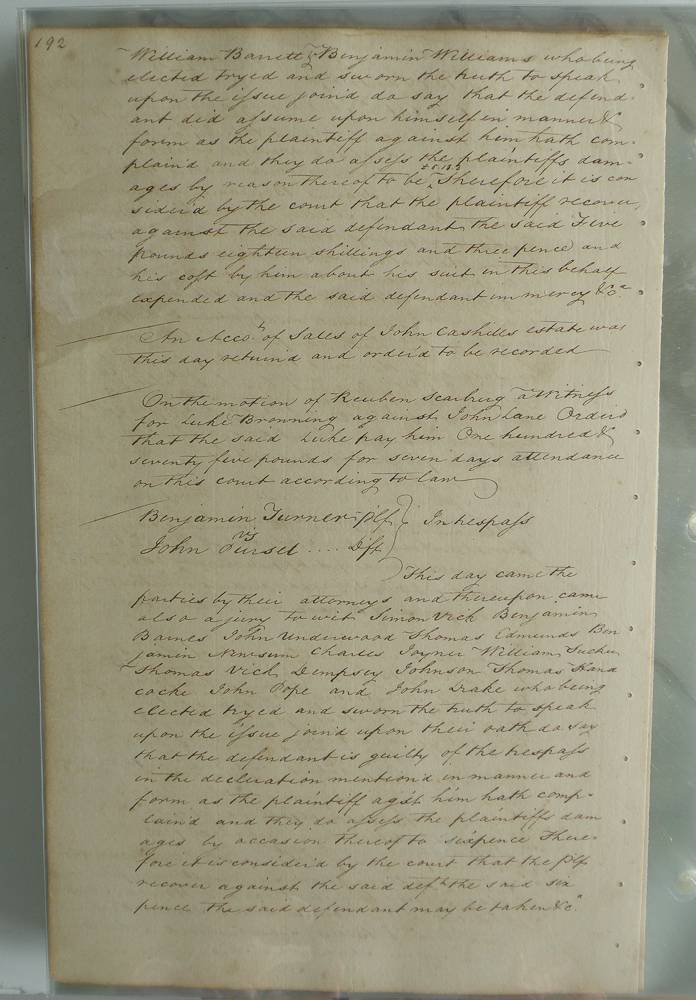 192
William Barrett & Benjamin Williams who being
elected tryed and sworn the truth to speak
upon the issue joind do say that the defend-
ant did assume upon himself in manner &
form as the plaintiff against him hath com-
plaind and they do assess the plaintiffs dam-
ages by reason thereof to be £5.18.3 Therefore it is con
siderd by the court that the plaintiff recover
against the said defendant the said Five
pounds eighteen shillings and three pence and
his cost by him about his suit in this behalf
expended and the said defendant in mercy &c.
An Acco.t of Sales of John Cashills estate was
this day returnd and orderd to be recorded
On the motion of Reuben Searbrug a Witness
for Luke Browning against John Lane Orderd
that the said Luke pay him One hundred &
seventy five pounds for seven days attendance
on this court according to law
Benjamin Turner Plf
vs
In trespass
John Pursel .... Dft
This day came the
parties by their attorneys and thereupon came
also a jury to wit Simon Vick Benjamin
Barnes John Underwood Thomas Edmunds Ben
jamin Newsum Charles Joyner William Tucker
Thomas Vick Dempsey Johnson Thomas Hand
cocke John Pope and John Drake who being
elected tryed and sworn the truth to speak
upon the issue joind upon their oath do say
that the defendant is guilty of the trespass
in the declaration mentiond in manner and
form as the plaintiff agst him hath comp-
laind and they do assess the plaintiffs dam
ages by occasion thereof to sixpence There-
fore it is considerd by the court that the Plf
recover against the said deft the said six
pence the said defendant may be taken &c.